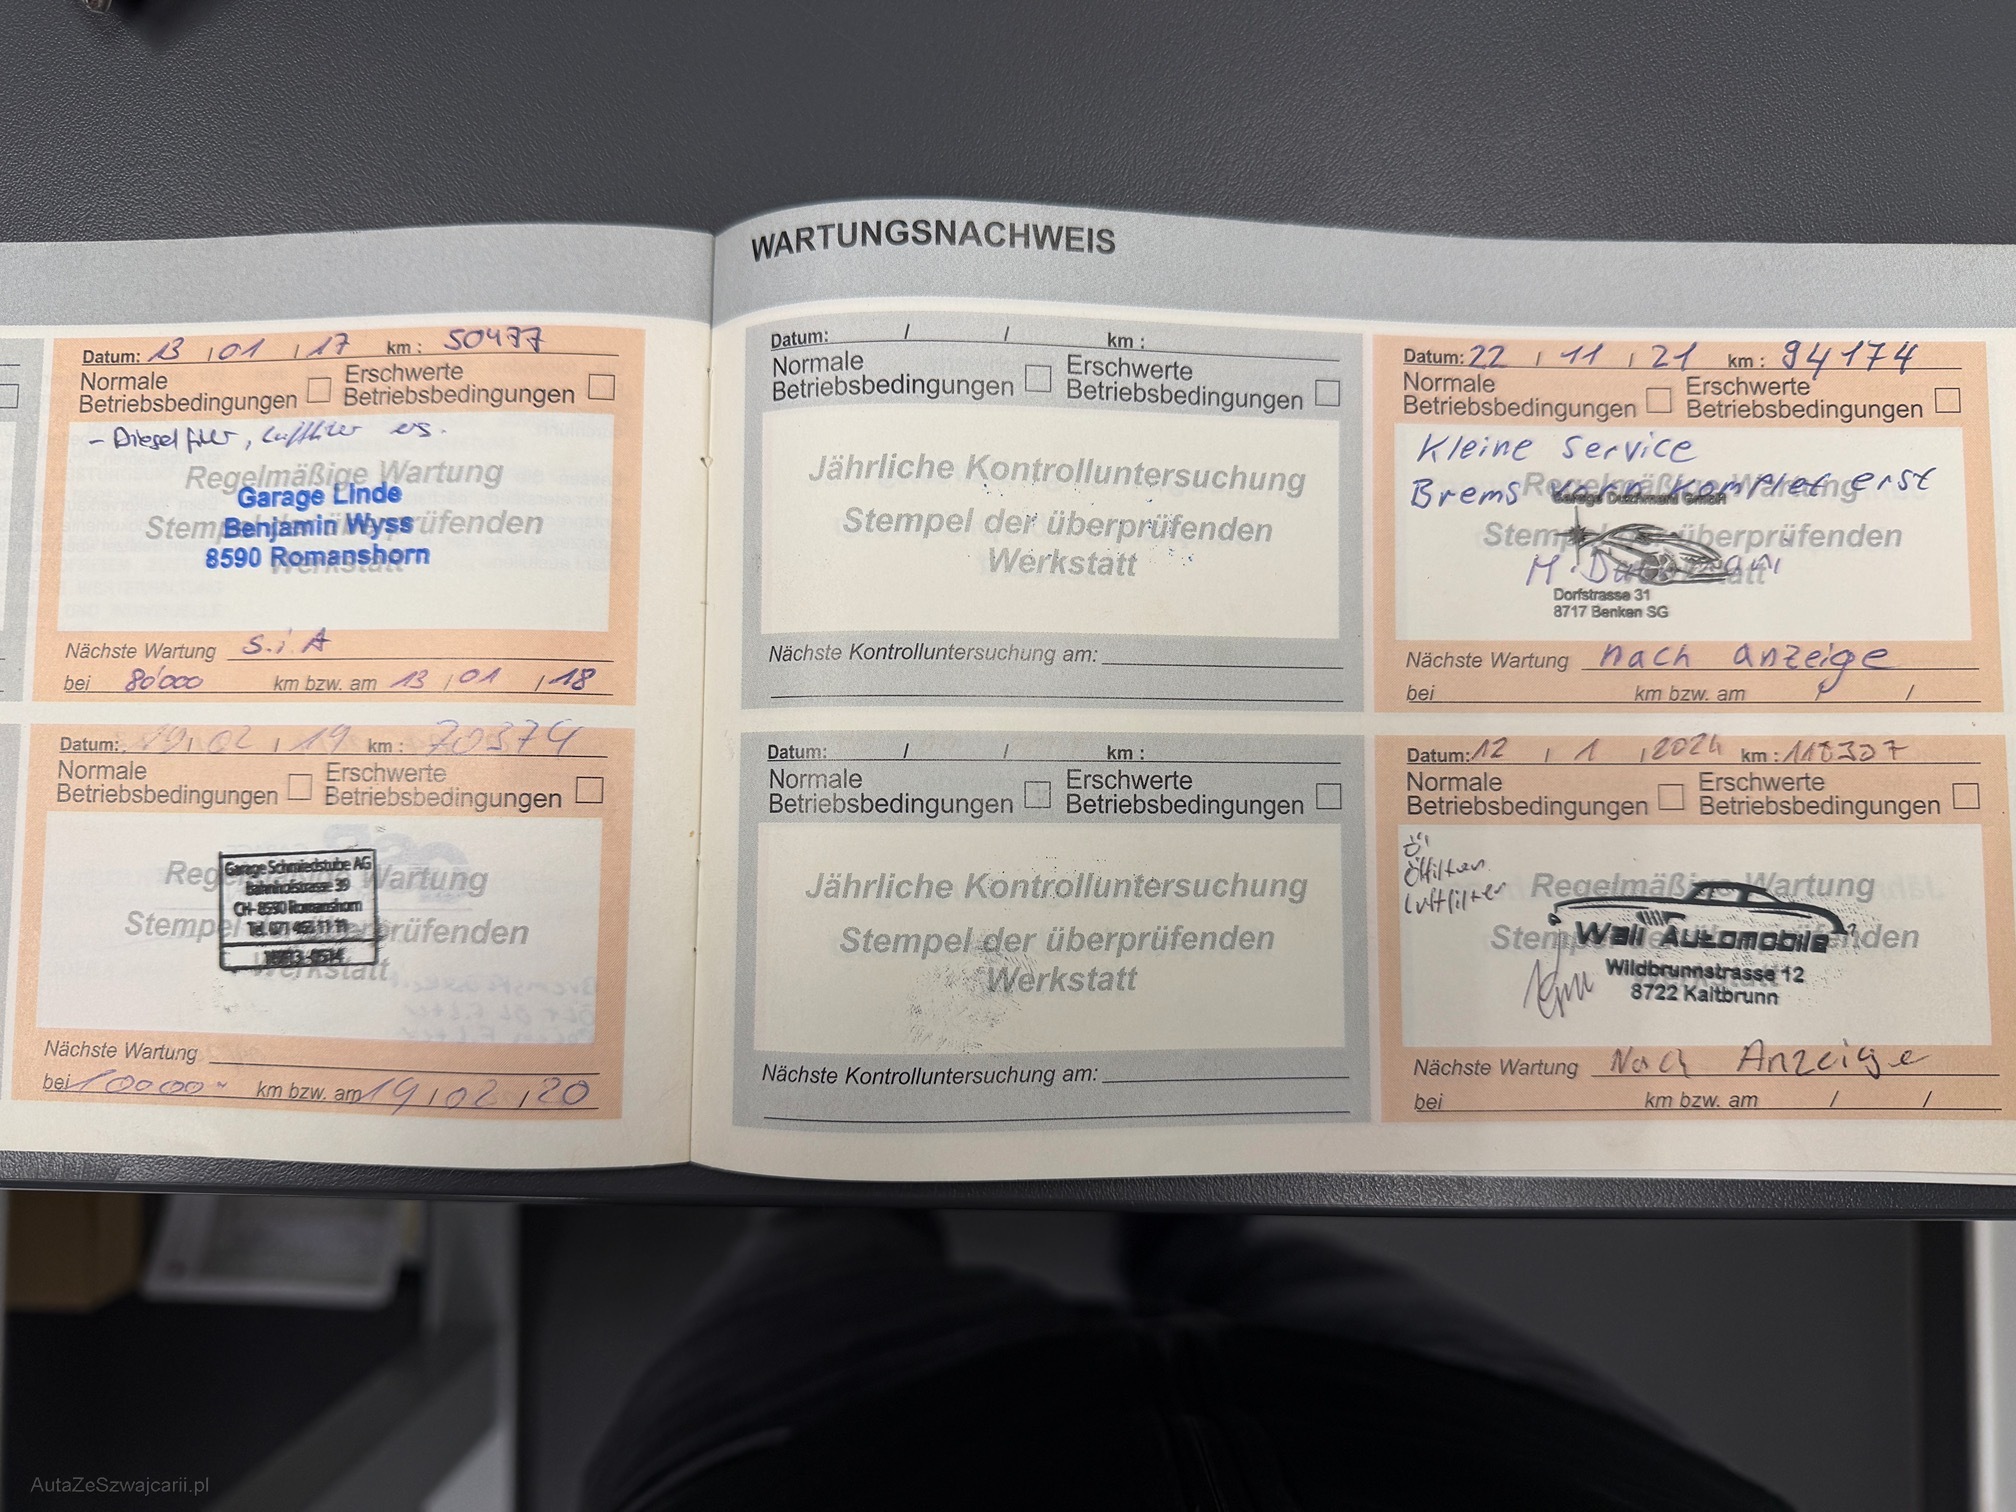 WARTUNGSNACHWEIS
Datum: 13 / 01 / 17 km : 50477
Normale Betriebsbedingungen Erschwerte Betriebsbedingungen
- Dieselfilter, Luftfilter ers.
Regelmäßige Wartung
Garage Linde
Stempel der überprüfenden
Benjamin Wyss
8590 Romanshorn
Werkstatt
Nächste Wartung s.i.A
bei 80'000 km bzw. am 13 / 01 / 18
Datum: 19 / 02 / 19 km : 70374
Normale Betriebsbedingungen Erschwerte Betriebsbedingungen
Regelmäßige Wartung
Garage Schmiedstube AG
Bahnhofstrasse 39
CH-8590 Romanshorn
Stempel der überprüfenden
Werkstatt
Nächste Wartung
bei 10000 km bzw. am 19 / 02 / 20
Datum: / / km :
Normale Betriebsbedingungen Erschwerte Betriebsbedingungen
Jährliche Kontrolluntersuchung
Stempel der überprüfenden
Werkstatt
Nächste Kontrolluntersuchung am:
Datum: / / km :
Normale Betriebsbedingungen Erschwerte Betriebsbedingungen
Jährliche Kontrolluntersuchung
Stempel der überprüfenden
Werkstatt
Nächste Kontrolluntersuchung am:
Datum: 22 / 11 / 21 km : 94174
Normale Betriebsbedingungen Erschwerte Betriebsbedingungen
Kleine Service
Brems vorn komplet erst
Regelmäßige Wartung
Stempel der überprüfenden
Werkstatt
Dorfstrasse 31
8717 Benken SG
Nächste Wartung nach anzeige
bei km bzw. am / /
Datum: 12 / 1 / 2024 km : 118307
Normale Betriebsbedingungen Erschwerte Betriebsbedingungen
Öl
Ölfilter
Luftfilter
Regelmäßige Wartung
Stempel der überprüfenden
Wali Automobile
Werkstatt
Wildbrunnstrasse 12
8722 Kaltbrunn
Nächste Wartung Nach Anzeige
bei km bzw. am / /
AutaZeSzwajcarii.pl